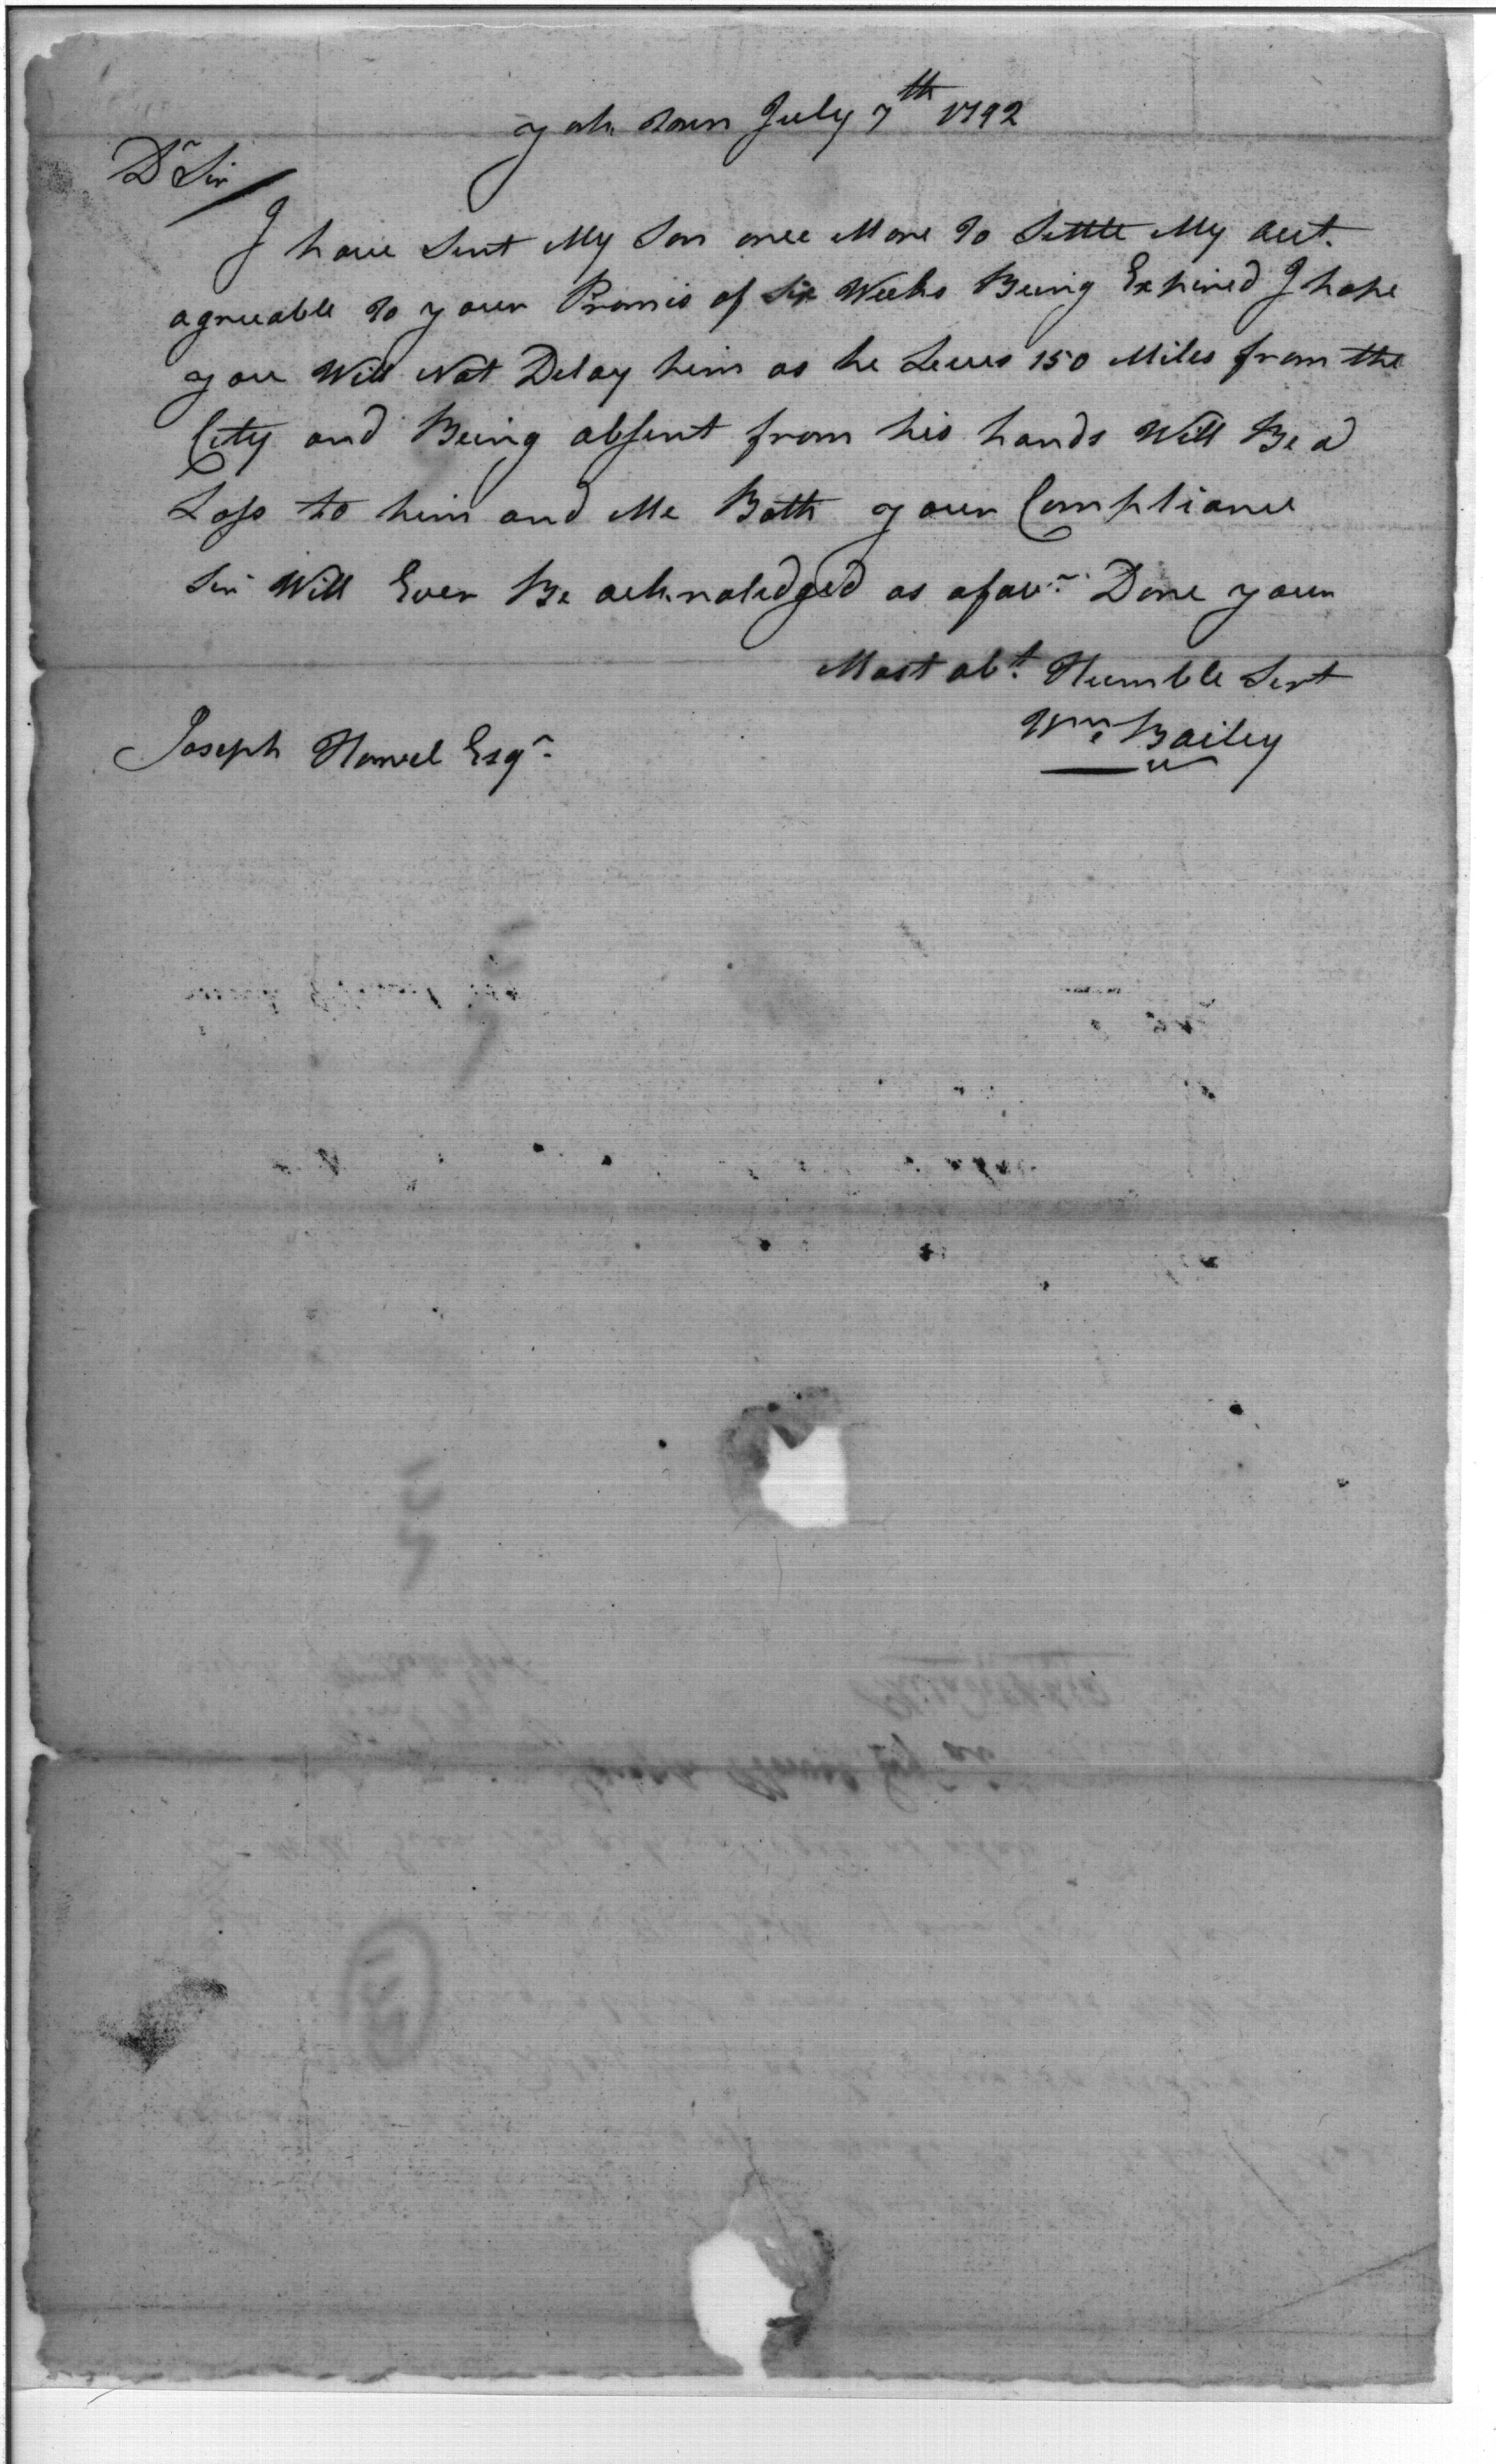 york town July 7th 1792
Dr Sir
I have Sent My Son once More to Settle My acct.
agreeable to your Promis of Six Weeks Being Expired I hope
you Will Not Delay him as he Leves 150 Miles from the
City and Being absent from his hands Will Be a
Loss to him and Me Both your Compliance
Sir Will Ever Be acknoledged as afavr. Done your
Most obt. Humble Sert
Wm. Bailey
Joseph Howel Esqr.